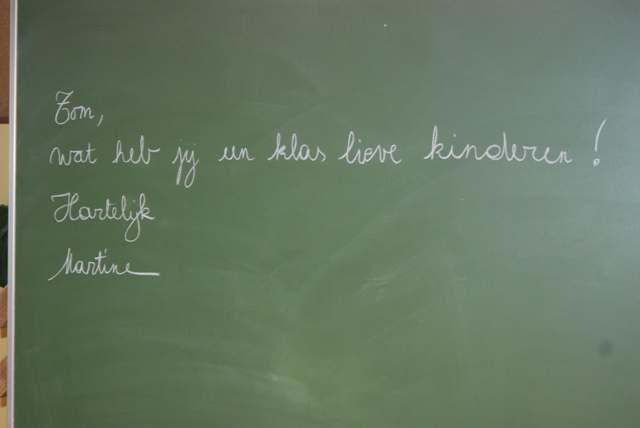 Tom,
wat heb jij een klas lieve kinderen !
Hartelijk
Martine